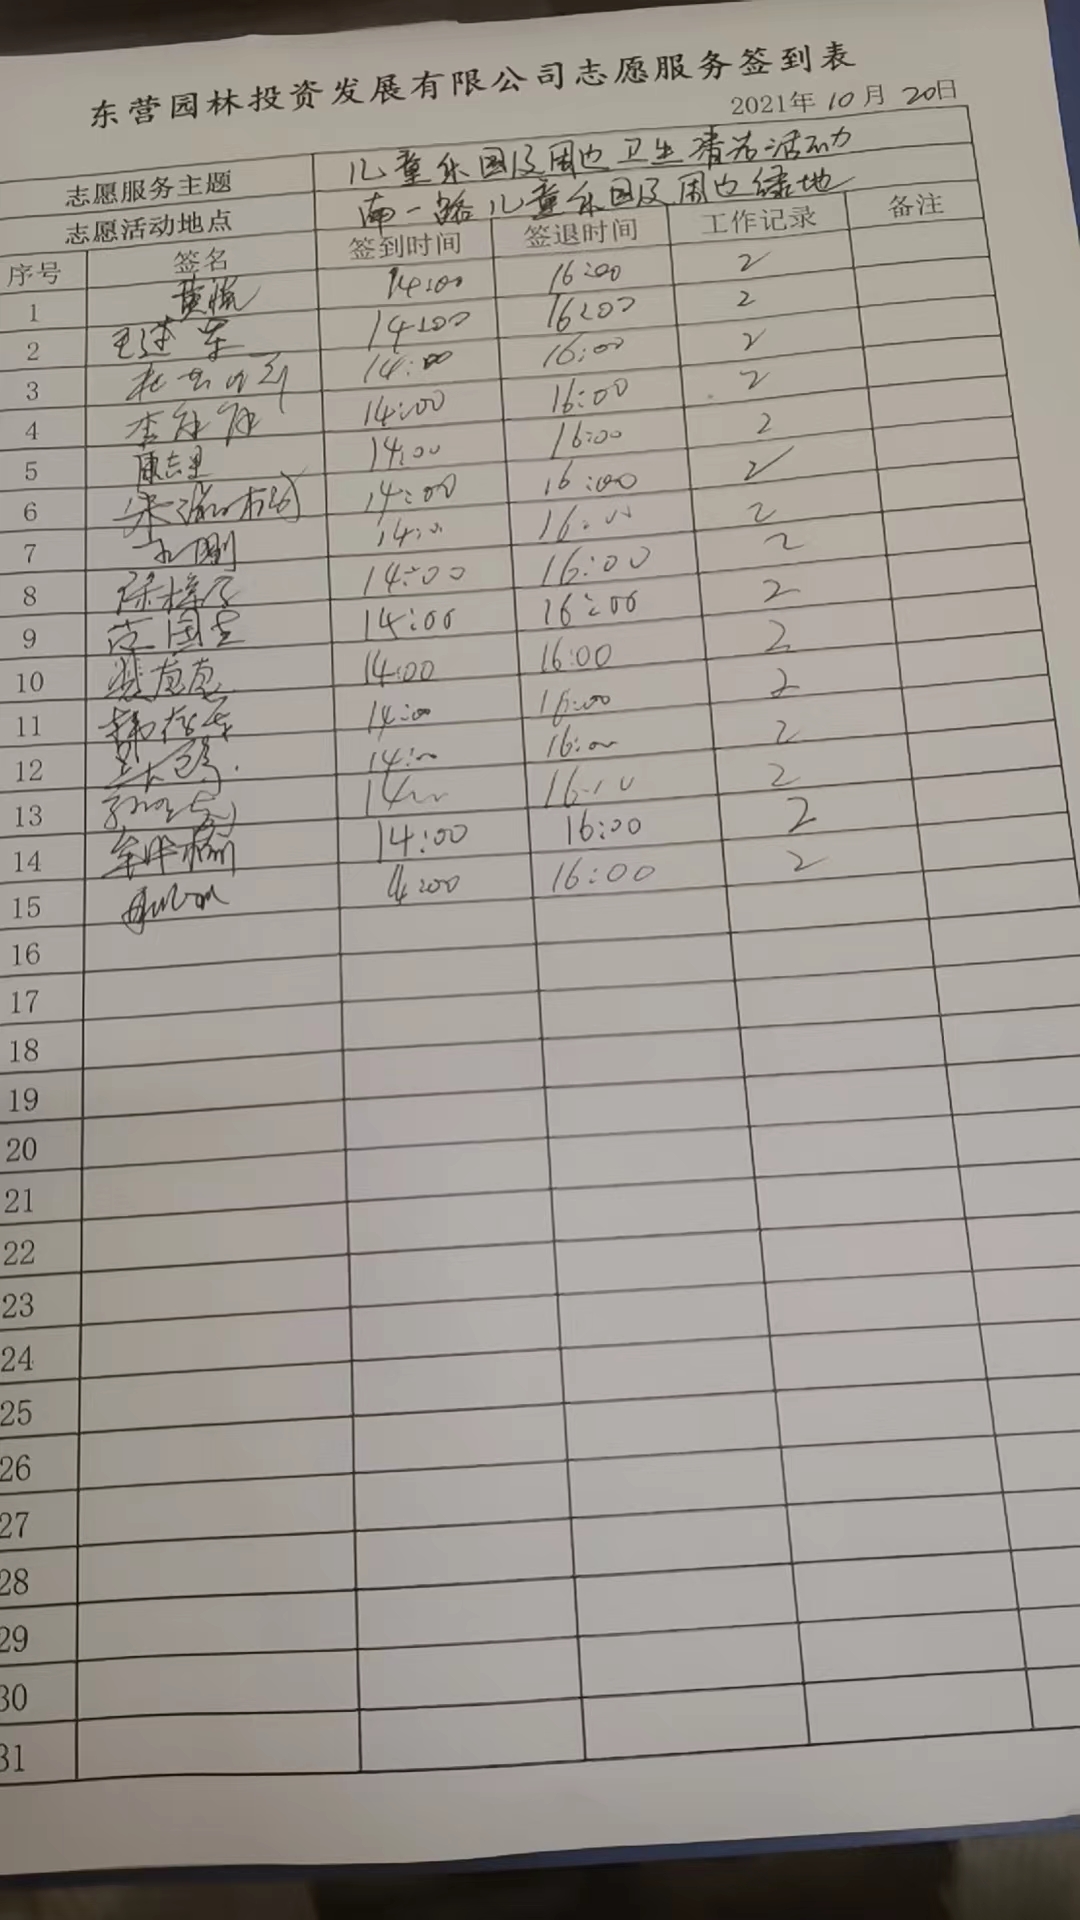 东营园林投资发展有限公司志愿服务签到表
2021年10月20日
志愿服务主题 儿童乐园及周边卫生清洁活动
志愿活动地点 南一路儿童乐园及周边绿地
序号 签名 签到时间 签退时间 工作记录 备注
1 14:00 16:00 2
2 王建军 14:00 16:00 2
3 14:00 16:00 2
4 14:00 16:00 2
5 14:00 16:00 2
6 14:00 16:00 2
7 14:00 16:00 2
8 14:00 16:00 2
9 范国圭 14:00 16:00 2
10 14:00 16:00 2
11 14:00 16:00 2
12 14:00 16:00 2
13 14:00 16:00 2
14 14:00 16:00 2
15 4:00 16:00 2
16
17
18
19
20
21
22
23
24
25
26
27
28
29
30
31